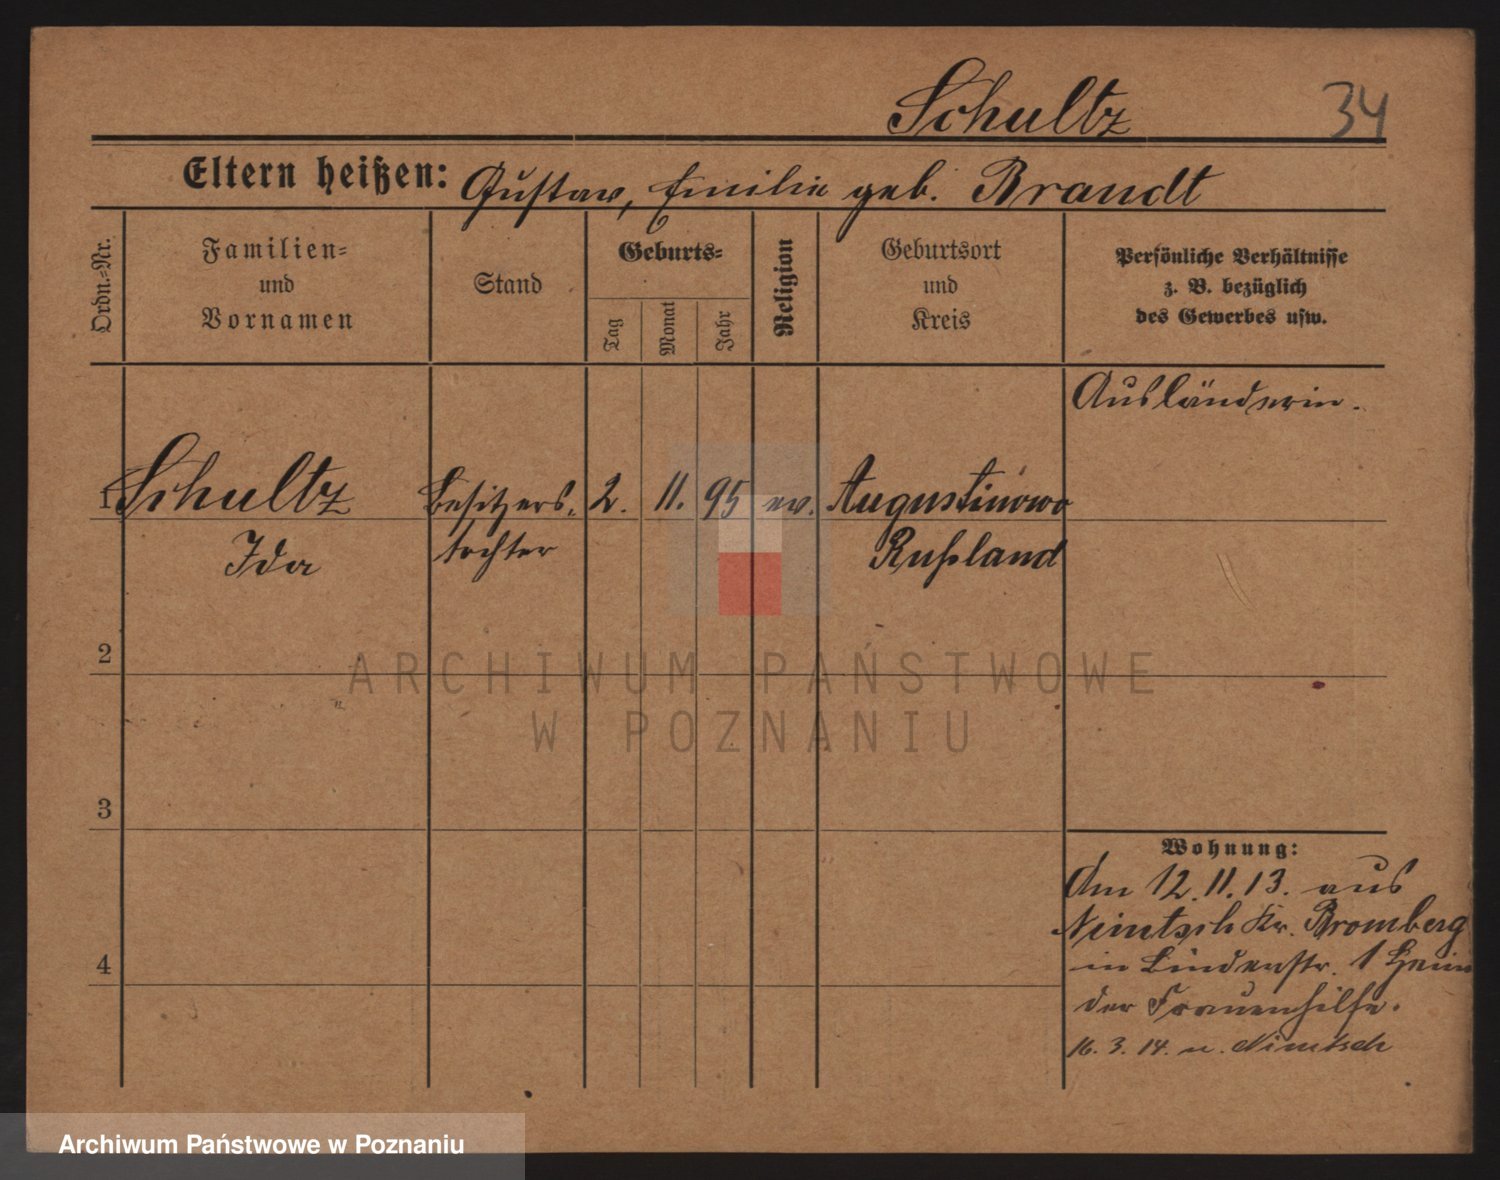 Schultz 34
Eltern heißen: Gustav, Emilie geb. Brandt
Ordn.-Nr.
Familien-
und
Vornamen
Stand
Geburts-
Tag
Monat
Jahr
Religion
Geburtsort
und
Kreis
Persönliche Verhältnisse
z. B. bezüglich
des Gewerbes usw.
Ausländerin.
1 Schultz Besitzers- 2. 11. 95 ev. Augustinowo
Ida tochter Rußland
2
3
4
Wohnung:
Am 12.11.13. aus
Nimtsch Kr. Bromberg
in Lindenstr. 1 Heim
der Frauenhilfe.
16. 3. 14. n. Nimtsch
ARCHIWUM PAŃSTWOWE
W POZNANIU
Archiwum Państwowe w Poznaniu